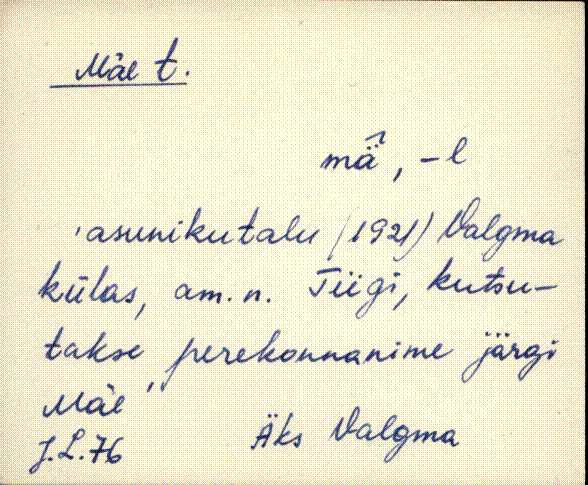 Mäe t.
mä̂, -l
'asunikutalu (1921) Valgma
külas, am.n. Tiigi, kutsu-
takse perekonnanime järgi
Mäe'
J.L.76 Äks Valgma